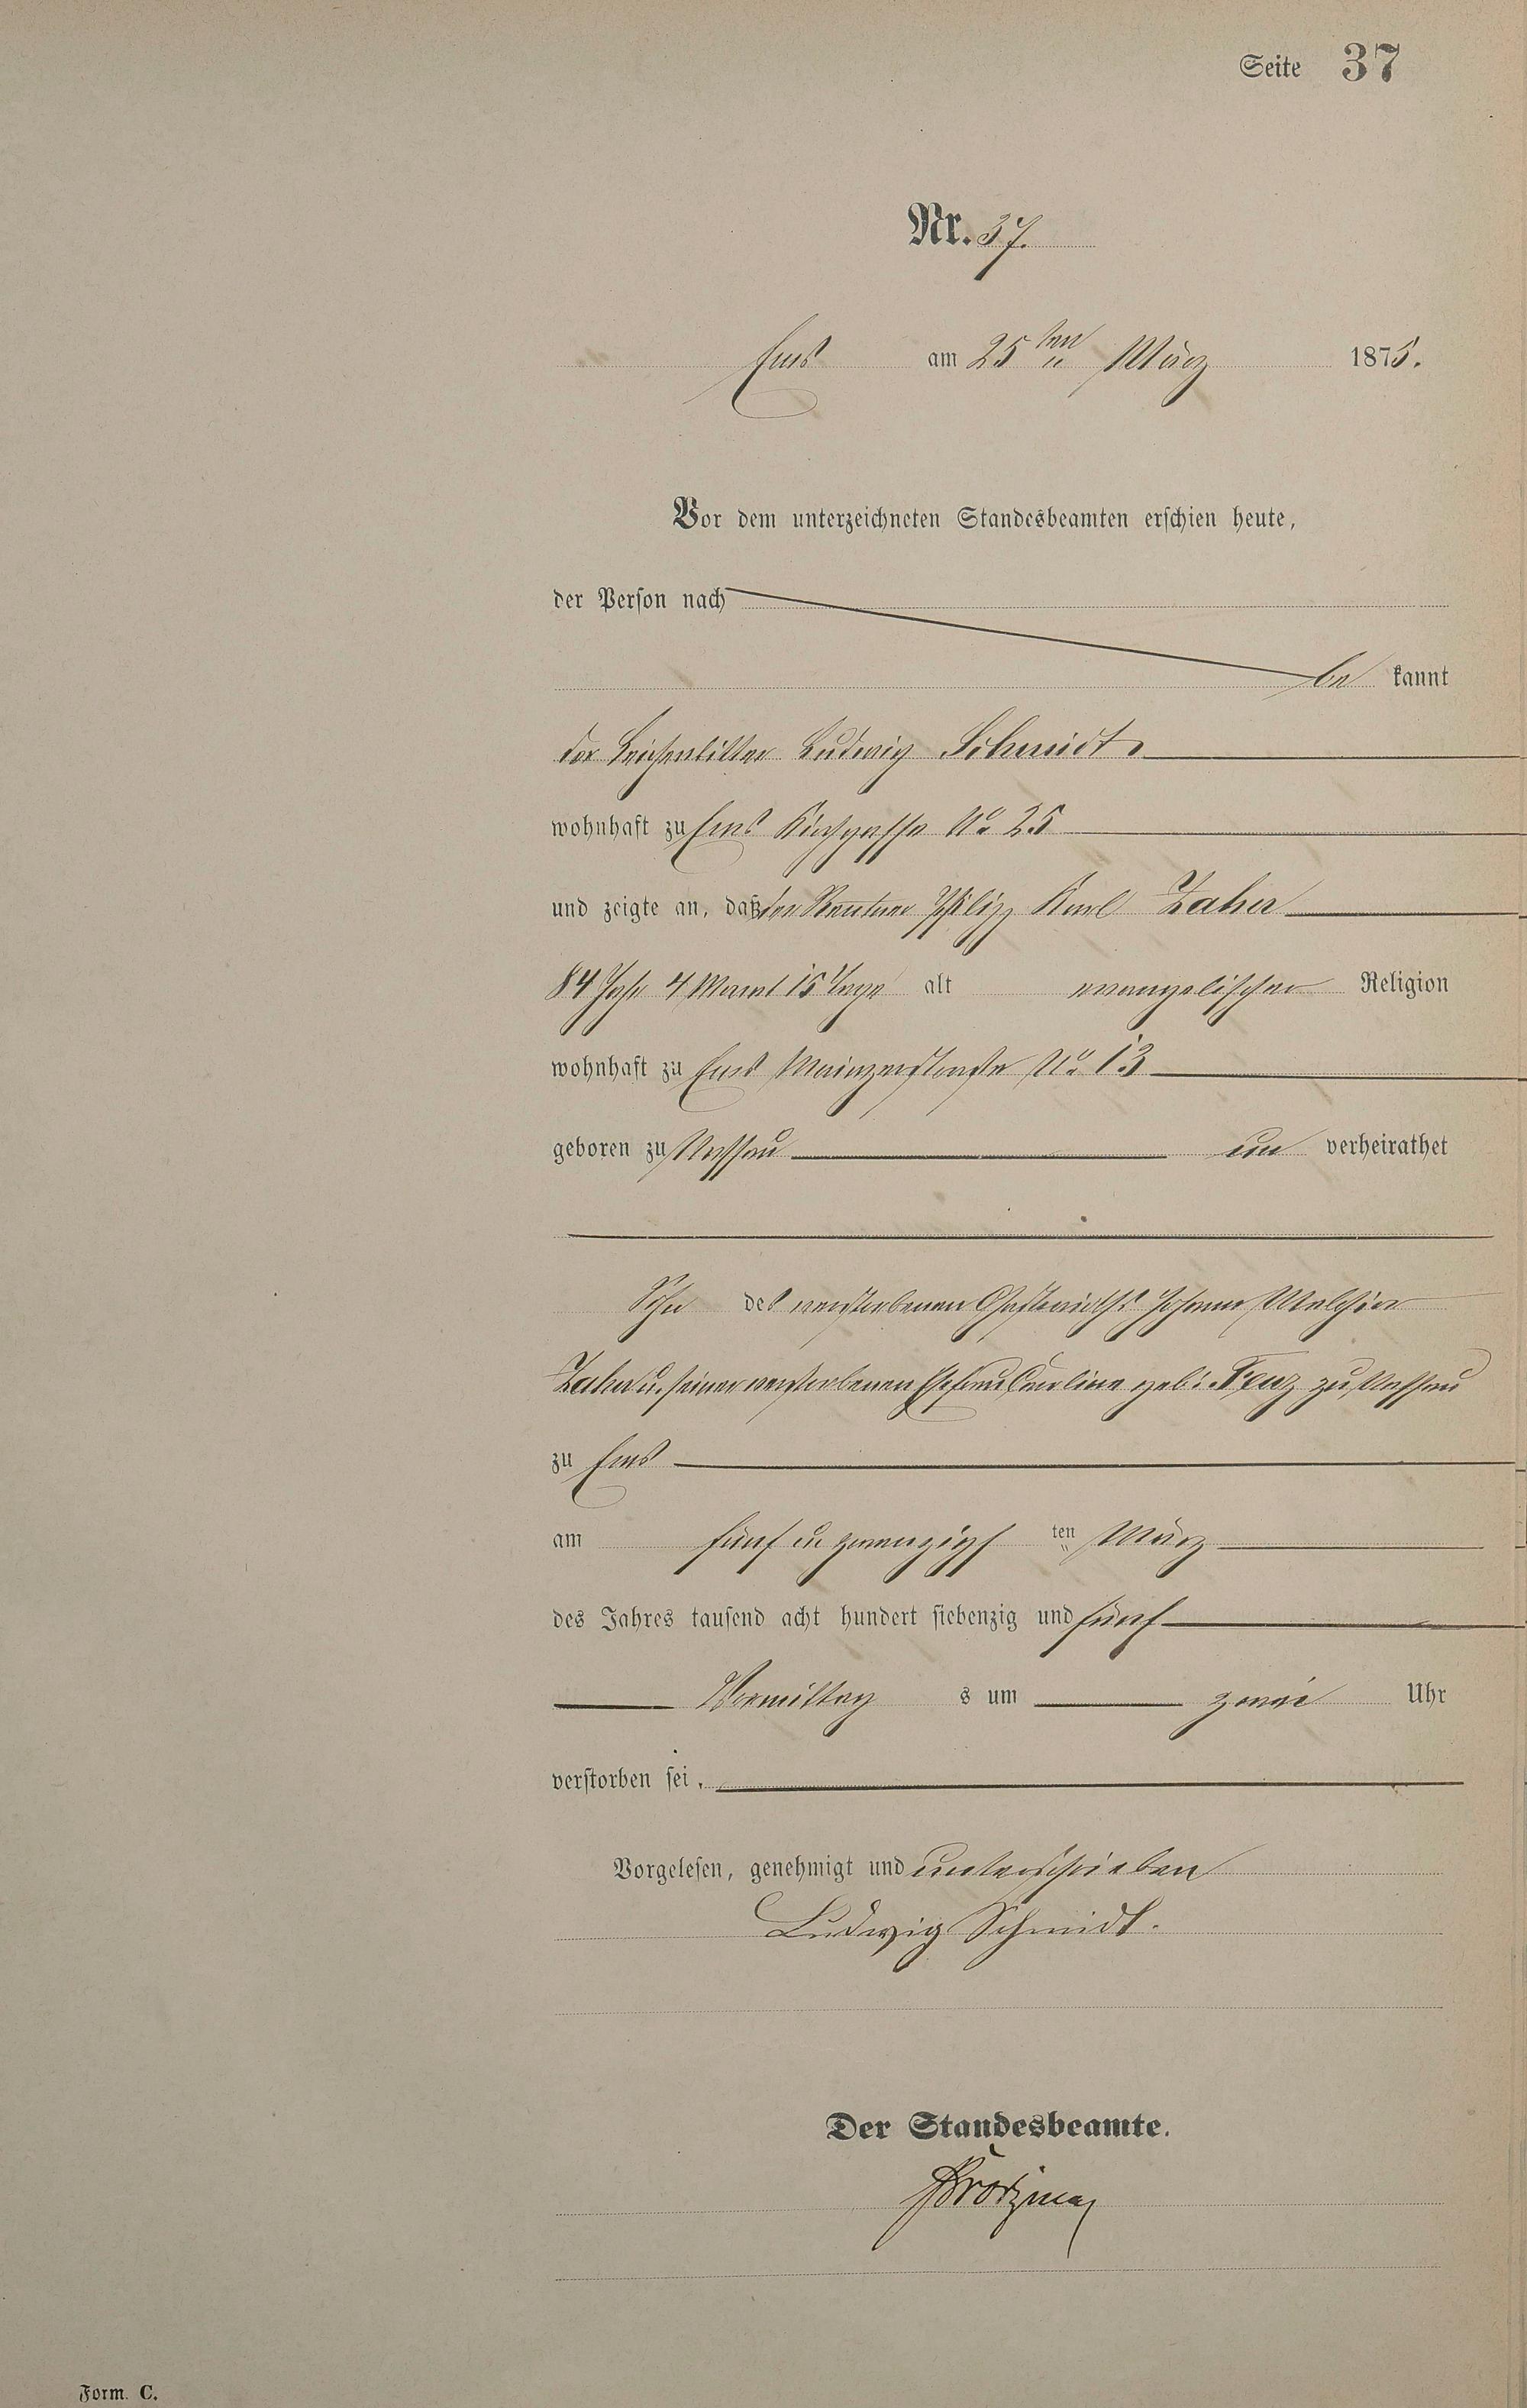 Seite 37
Nr. 37.
Ems am 25ten März 1875.
Vor dem unterzeichneten Standesbeamten erschien heute,
der Person nach
be kannt
der Leichenbitter Ludwig Schmidt
wohnhaft zu Ems Kirchgasse No 25
und zeigte an, daß der Rentner Philipp Karl Zaher
84 Jahr 4 Monat 15 Tage alt evangelischer Religion
wohnhaft zu Ems Mainzerstraße No 13
geboren zu Nassau un verheirathet
Sohn des verstorbenen Gastwirths Johann Melchior
u. seiner verstorbenen Ehefrau Caroline geb: zu Nassau
zu Ems
am fünf u zwanzigs ten März
des Jahres tausend acht hundert siebenzig und fünf
Vormittag s um zwei Uhr
verstorben sei.
Vorgelesen, genehmigt und unterschrieben
Ludwig Schmidt.
Der Standesbeamte.
Form. C.